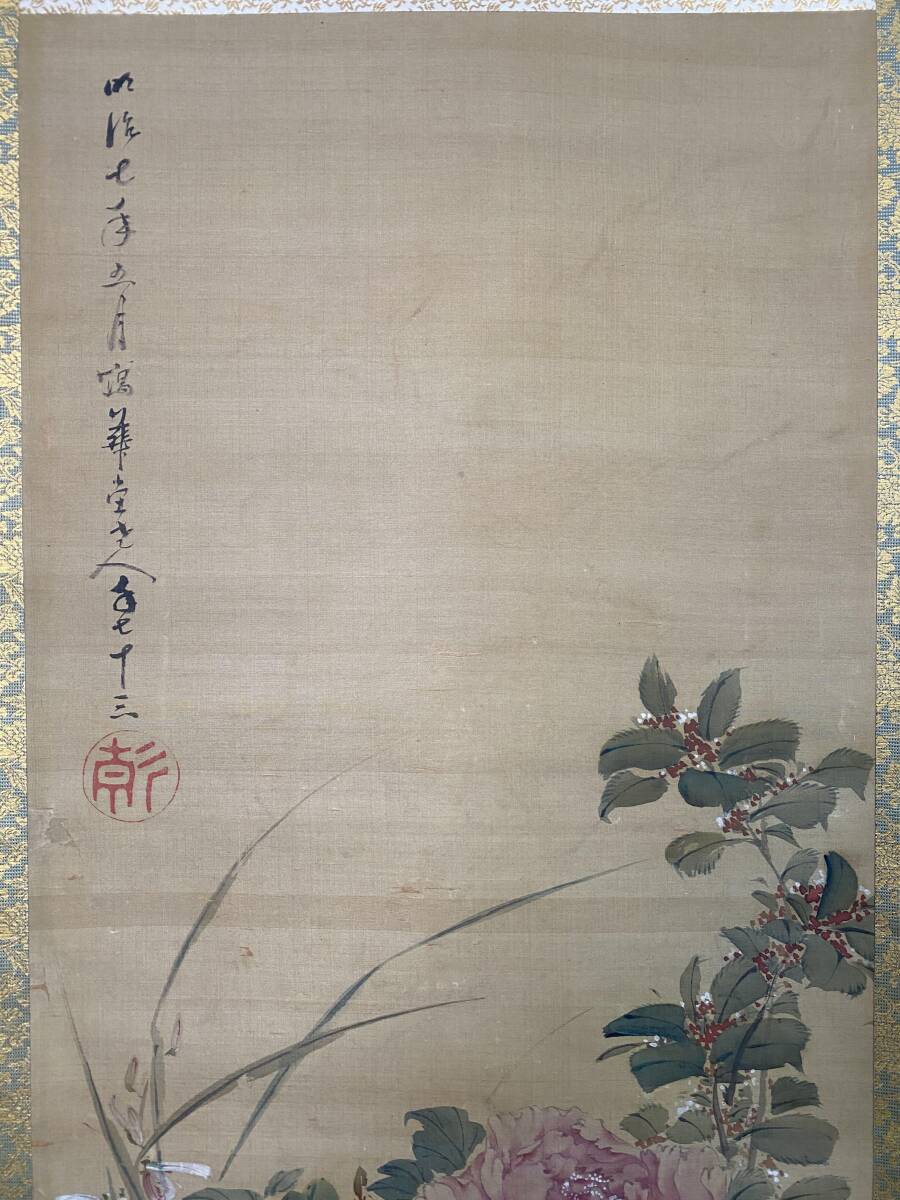 明治七年五月寫華堂老人年七十三
彰